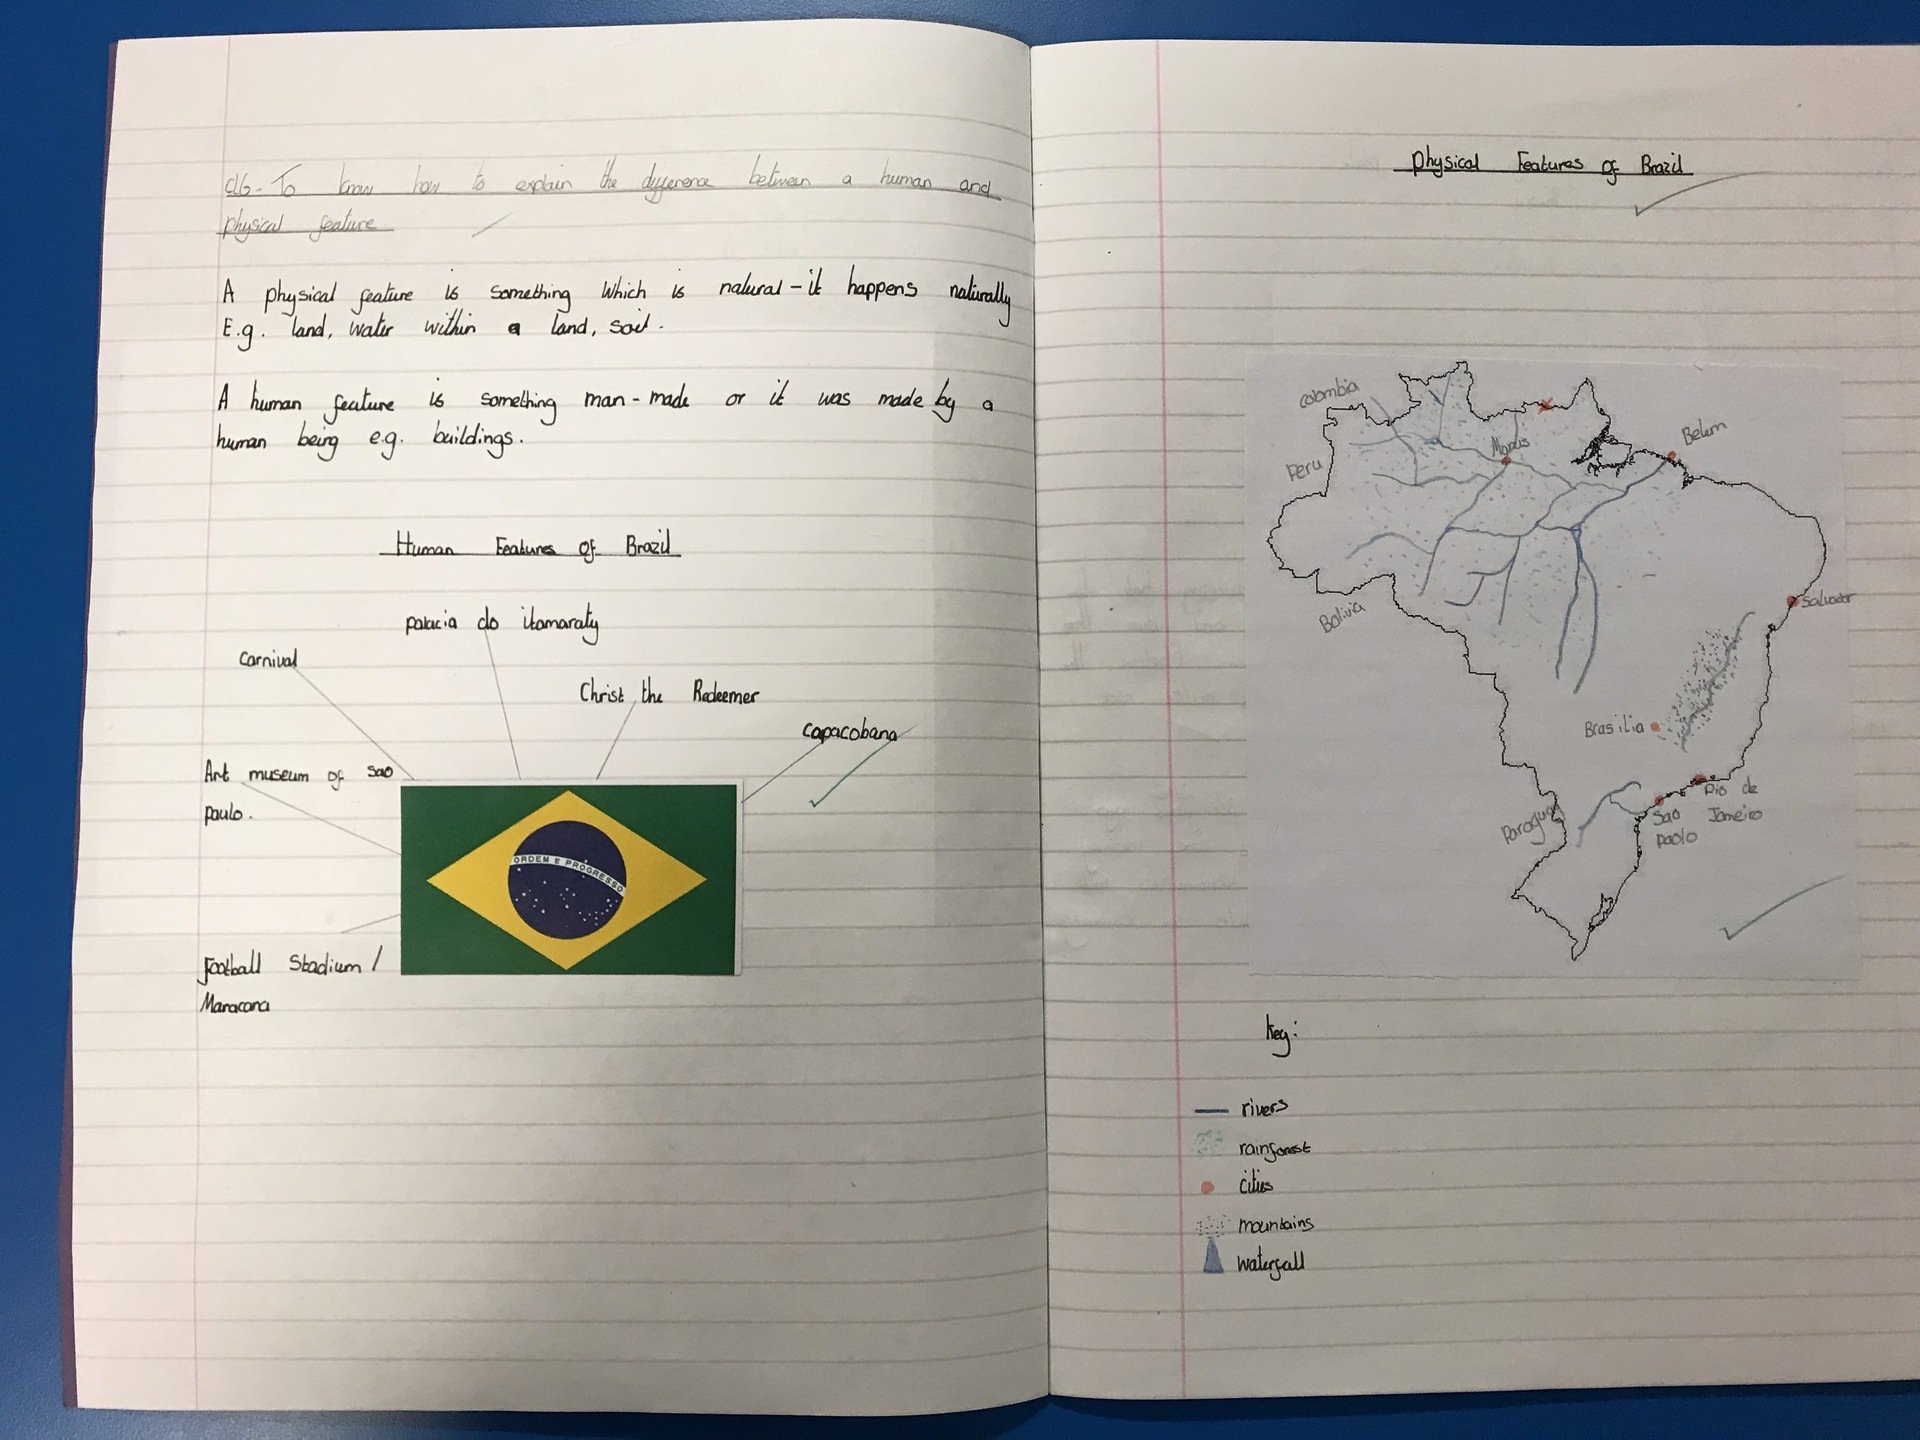 To know how to explain the difference between a human and
physical feature
A physical feature is something which is natural - it happens naturally
E.g. land, water within a land, soil.
A human feature is something man-made or it was made by a
human being e.g. buildings.
Human Features of Brazil
palacia do itamaraty
Carnival
Christ the Redeemer
capacobana
Art museum of sao
paulo.
ORDEM E PROGRESSO
Football Stadium /
Maracana
Physical Features of Brazil
Colombia
Belem
Manus
Peru
Bolivia
Salvador
Brasilia
Rio de
Janeiro
Sao
paolo
Paraguay
Key:
rivers
rainforest
cities
mountains
waterfall